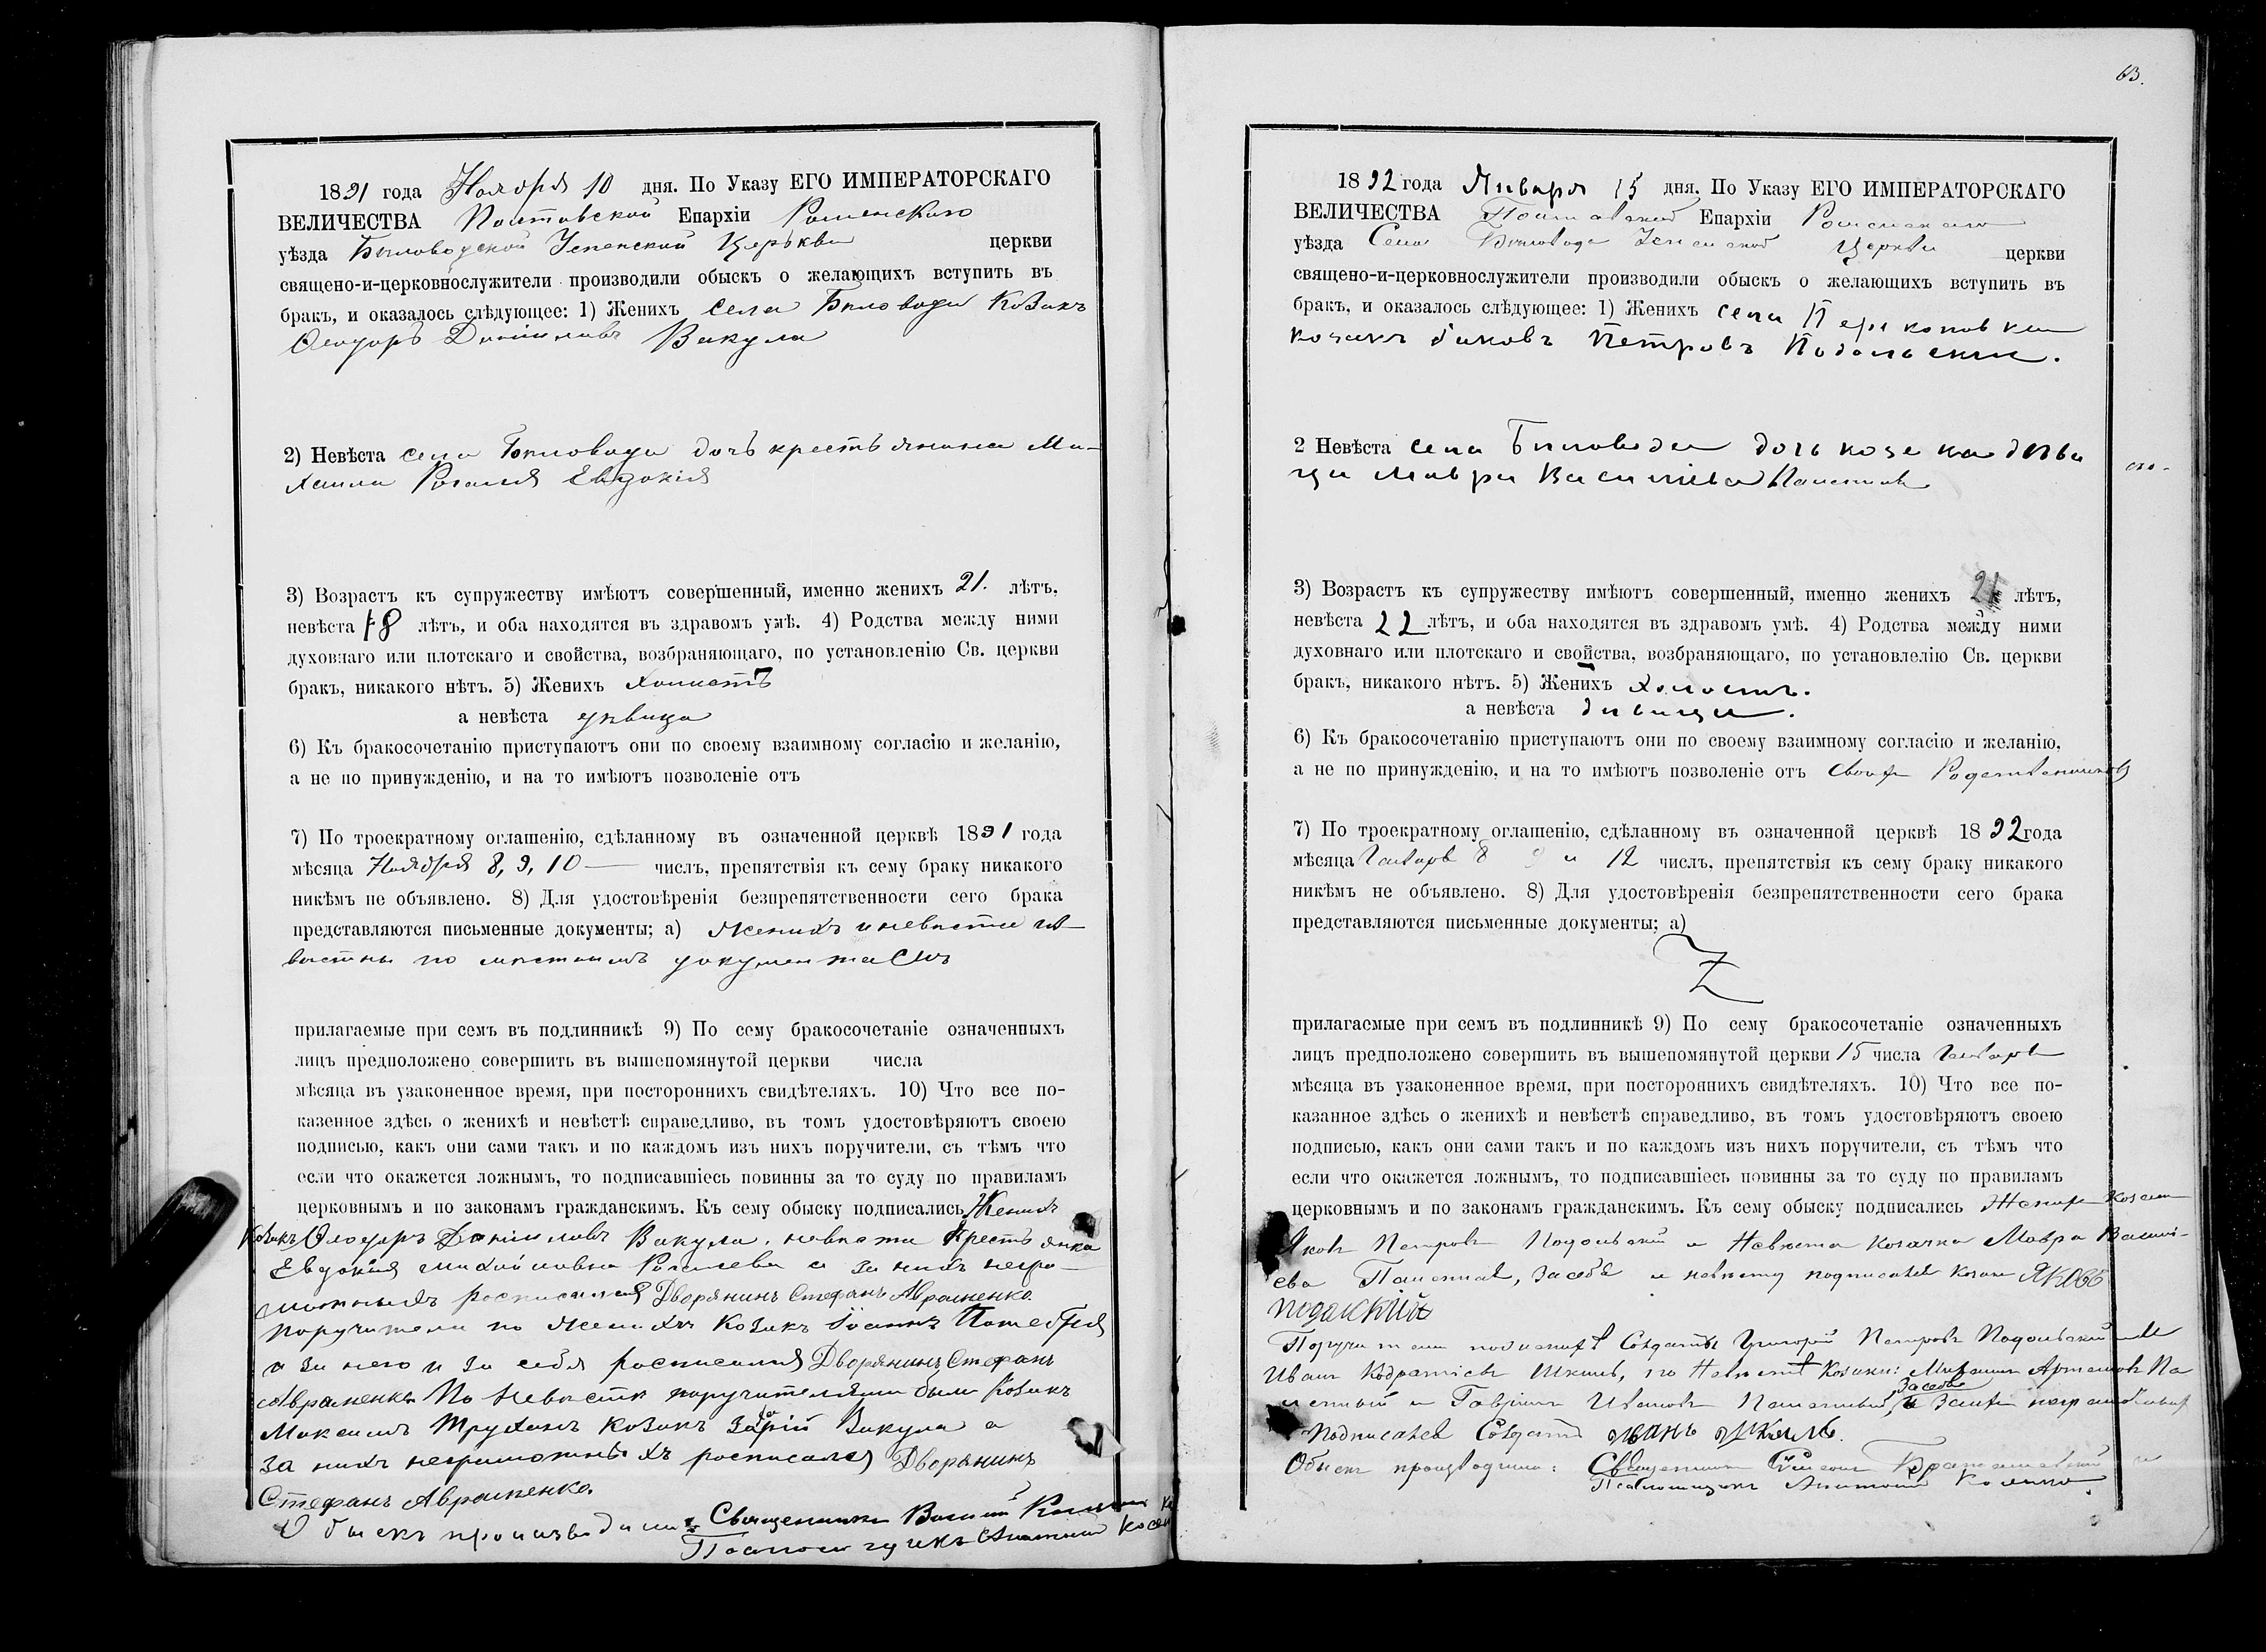 1891 года Ноября 10 дня. По Указу ЕГО ИМПЕРАТОРСКАГО
ВЕЛИЧЕСТВА Полтавской Епархіи Роменскаго
уѣзда Бѣловодской Успенской Церькви церкви
священо-и-церковнослужители производили обыскъ о желающихъ вступить въ
бракъ, и оказалось слѣдующее: 1) Женихъ села Бѣловода Козакъ
Ѳеодоръ Даніиловъ Вакула
2) Невѣста села Бѣловода дочь крестьянина Ми-
хаила Рогалея Евдокія
3) Возрастъ къ супружеству имѣютъ совершенный, именно женихъ 21. лѣтъ,
невѣста 18 лѣтъ, и оба находятся въ здравомъ умѣ. 4) Родства между ними
духовнаго или плотскаго и свойства, возбраняющаго, по установленію Св. церкви
бракъ, никакого нѣтъ. 5) Женихъ холостъ
а невѣста дѣвица
6) Къ бракосочетанію приступаютъ они по своему взаимному согласію и желанію,
а не по принужденію, и на то имѣютъ позволеніе отъ
7) По троекратному оглашенію, сдѣланному въ означенной церквѣ 1891 года
мѣсяца Ноября 8, 9, 10 — числъ, препятствія къ сему браку никакого
никѣмъ не объявлено. 8) Для удостовѣренія безпрепятственности сего брака
представляются письменные документы; а) Женихъ и невѣста из-
вѣстны по мѣстнымъ документамъ
прилагаемые при семъ въ подлинникѣ 9) По сему бракосочетаніе означенныхъ
лицъ предположено совершить въ вышепомянутой церкви числа
мѣсяца въ узаконенное время, при постороннихъ свидѣтеляхъ. 10) Что все по-
казенное здѣсь о женихѣ и невѣстѣ справедливо, въ томъ удостовѣряютъ своею
подписью, какъ они сами такъ и по каждомъ изъ нихъ поручители, съ тѣмъ что
если что окажется ложнымъ, то подписавшіесь повинны за то суду по правиламъ
церковнымъ и по законамъ гражданскимъ. Къ сему обыску подписались Женихъ
Козакъ Ѳеодоръ Даніиловъ Вакула, невѣста Крестьянка
Евдокія Михайловна Рогалева а за нихъ негра-
мотныхъ росписался Дворянинъ Стефанъ Авраменко.
Поручители по Женихѣ Козакъ Іоаннъ
а за него и за себя росписался Дворянинъ Стефанъ
Авраменко По Невѣстѣ поручителями были Козакъ
Максимъ Труханъ Козакъ Вакула а
за нихъ неграмотныхъ росписался Дворянинъ
Стефанъ Авраменко.
Обыскъ производили: Священникъ
Псаломщикъ Анатолій
63.
1892 года Января 15 дня. По Указу ЕГО ИМПЕРАТОРСКАГО
ВЕЛИЧЕСТВА Полтавской Епархіи Роменскаго
уѣзда Села Бѣловода Успенской Церкви церкви
священо-и-церковнослужители производили обыскъ о желающихъ вступить въ
бракъ, и оказалось слѣдующее: 1) Женихъ села Перекоповки
козакъ Яковъ Петровъ Подольскій.
2 Невѣста села Бѣловода дочь козака дѣви
ца Мавра Василіева
3) Возрастъ къ супружеству имѣютъ совершенный, именно женихъ 21 лѣтъ,
невѣста 22 лѣтъ, и оба находятся въ здравомъ умѣ. 4) Родства между ними
духовнаго или плотскаго и свойства, возбраняющаго, по установлелію Св. церкви
бракъ, никакого нѣтъ. 5) Женихъ холостъ.
а невѣста дѣвица.
6) Къ бракосочетанію приступаютъ они по своему взаимному согласію и желанію,
а не по принужденію, и на то имѣютъ позволеніе отъ своихъ Родственниковъ
7) По троекратному оглашенію, сдѣланному въ означенной церквѣ 1892 года
мѣсяца Января 8 9 и 12 числъ, препятствія къ сему браку никакого
никѣмъ не объявлено. 8) Для удостовѣренія безпрепятственности сего брака
представляются письменные документы; а)
Z
прилагаемые при семъ въ подлинникѣ 9) По сему бракосочетаніе означенныхъ
лицъ предположено совершить въ вышепомянутой церкви 15 числа Января
мѣсяца въ узаконенное время, при постороннихъ свидѣтеляхъ. 10) Что все по-
казанное здѣсь о женихѣ и невѣстѣ справедливо, въ томъ удостовѣряютъ своею
подписью, какъ они сами такъ и по каждомъ изъ нихъ поручители, съ тѣмъ что
если что окажется ложнымъ, то подписавшіесь повинны за то суду по правиламъ
церковнымъ и по законамъ гражданскимъ. Къ сему обыску подписались Женихъ козакъ
Яковъ Петровъ Подольскій и Невѣста козачка Мавра Василі-
ева за себя и невѣсту подписался козакъ Яковъ
Подолскій
Поручители по женихѣ Солдаты Григорій Петровъ Подольскій и
Иванъ Шкиль, по Невѣстѣ Козаки: Михаилъ Артемовъ Па
и Гавріилъ Ивановъ за себя и за нихъ неграмотныхъ
Подписался Солдатъ Иванъ Шкиль.
Обыскъ производили: Священникъ Симеонъ и
Псаломщикъ Анатолій